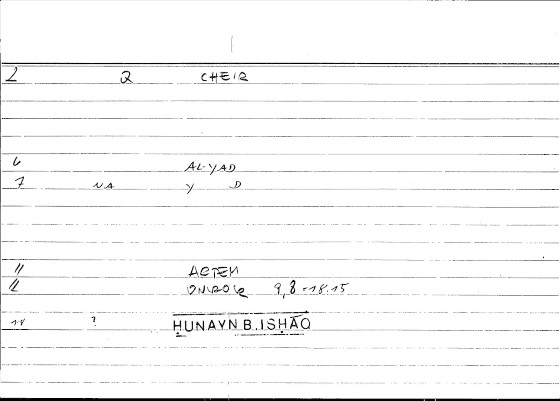 2 2 CHEIR
6 AL-YAD
7 NA Y D
11 ACTEM
12 ONIROCR 9,8-18.15
14 ? ḤUNAYN B. ISḤĀQ